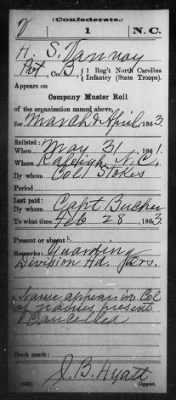 (Confederate.)
V 1 N.C.
H. S. Vannoy
Pvt, Co. B, 1 Reg't North Carolina
Infantry (State Troops).
Appears on
Company Muster Roll
of the organization named above,
for March & April, 1863.
Enlisted:
When May 31, 1861.
Where Raleigh N.C.
By whom Col Stokes
Period
Last paid:
By whom Capt
To what time Feb 28, 1863.
Present or absent
Remarks: Guarding
Division Hd. Qrs.
Name appears in Col
of names present
Cancelled
Book mark:
J. B. Hyatt
Copyist.